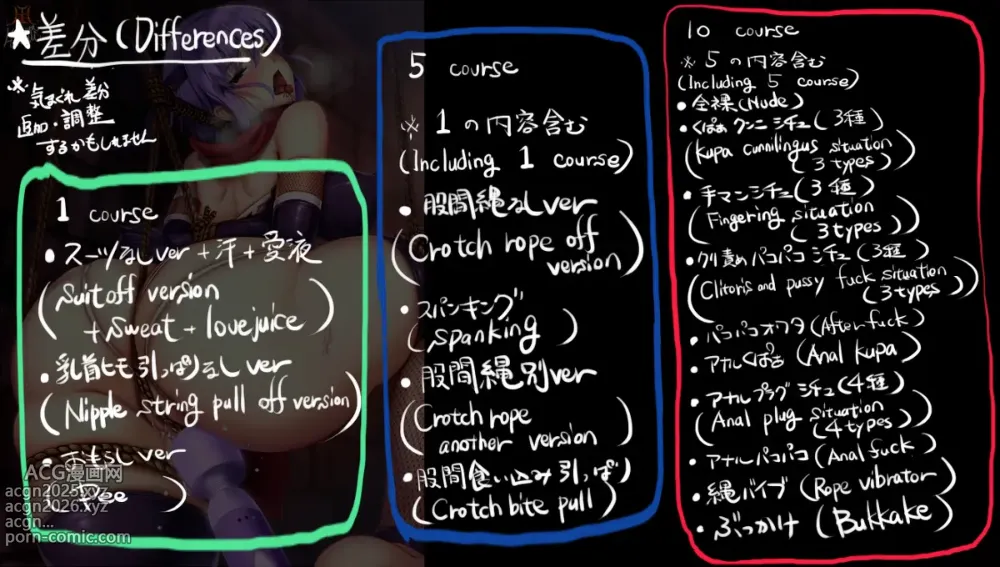 ★差分(Differences)
※気まぐれ差分
追加・調整
するかもしれません
1 course
・スーツなしver+汗+愛液
(Suit off version
+Sweat+lovejuice)
・乳首ヒモ引っぱりなしver
(Nipple string pull off version)
・おもらしver
(Pee)
ACG漫画网
acgn2025.xyz
acgn2026.xyz
acgn...
porn-comic.com
5 course
※1の内容含む
(Including 1 course)
・股間縄なしver
(Crotch rope off
version)
・スパンキング
(Spanking)
・股間縄別ver
(Crotch rope
another version)
・股間食い込み引っぱり
(Crotch bite pull)
10 course
※5の内容含む
(Including 5 course)
・全裸(Nude)
・くぱぁクンニシチュ(3種)
(Kupa cunnilingus situation
3types)
・手マンシチュ(3種)
(Fingering situation
3types)
・クリ責めパコパコシチュ(3種)
(Clitoris and pussy fuck situation
(3types)
・パコパコオワタ(After fuck)
・アナルくぱぁ(Anal kupa)
・アナルプラグシチュ(4種)
(Anal plug situation
(4types)
・アナルパコパコ(Anal fuck)
・縄バイブ(Rope vibrator)
・ぶっかけ(Bukkake)